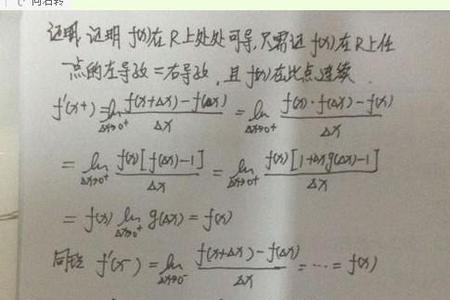 证明:证明 f(x)在R上处处可导,只需证 f(x)在R上任
一点的左导数=右导数,且f(x)在此点连续.
f'(x+)=lim_{Δx→0+} (f(x+Δx)-f(Δx))/Δx = lim_{Δx→0+} (f(x)·f(Δx)-f(x))/Δx
= lim_{Δx→0+} f(x)[f(Δx)-1]/Δx = lim_{Δx→0+} f(x)[1+Δxg(Δx)-1]/Δx
= f(x) lim_{Δx→0+} g(Δx) = f(x)
同理 f'(x-) = lim_{Δx→0-} (f(x+Δx)-f(Δx))/Δx = ··· = f(x)